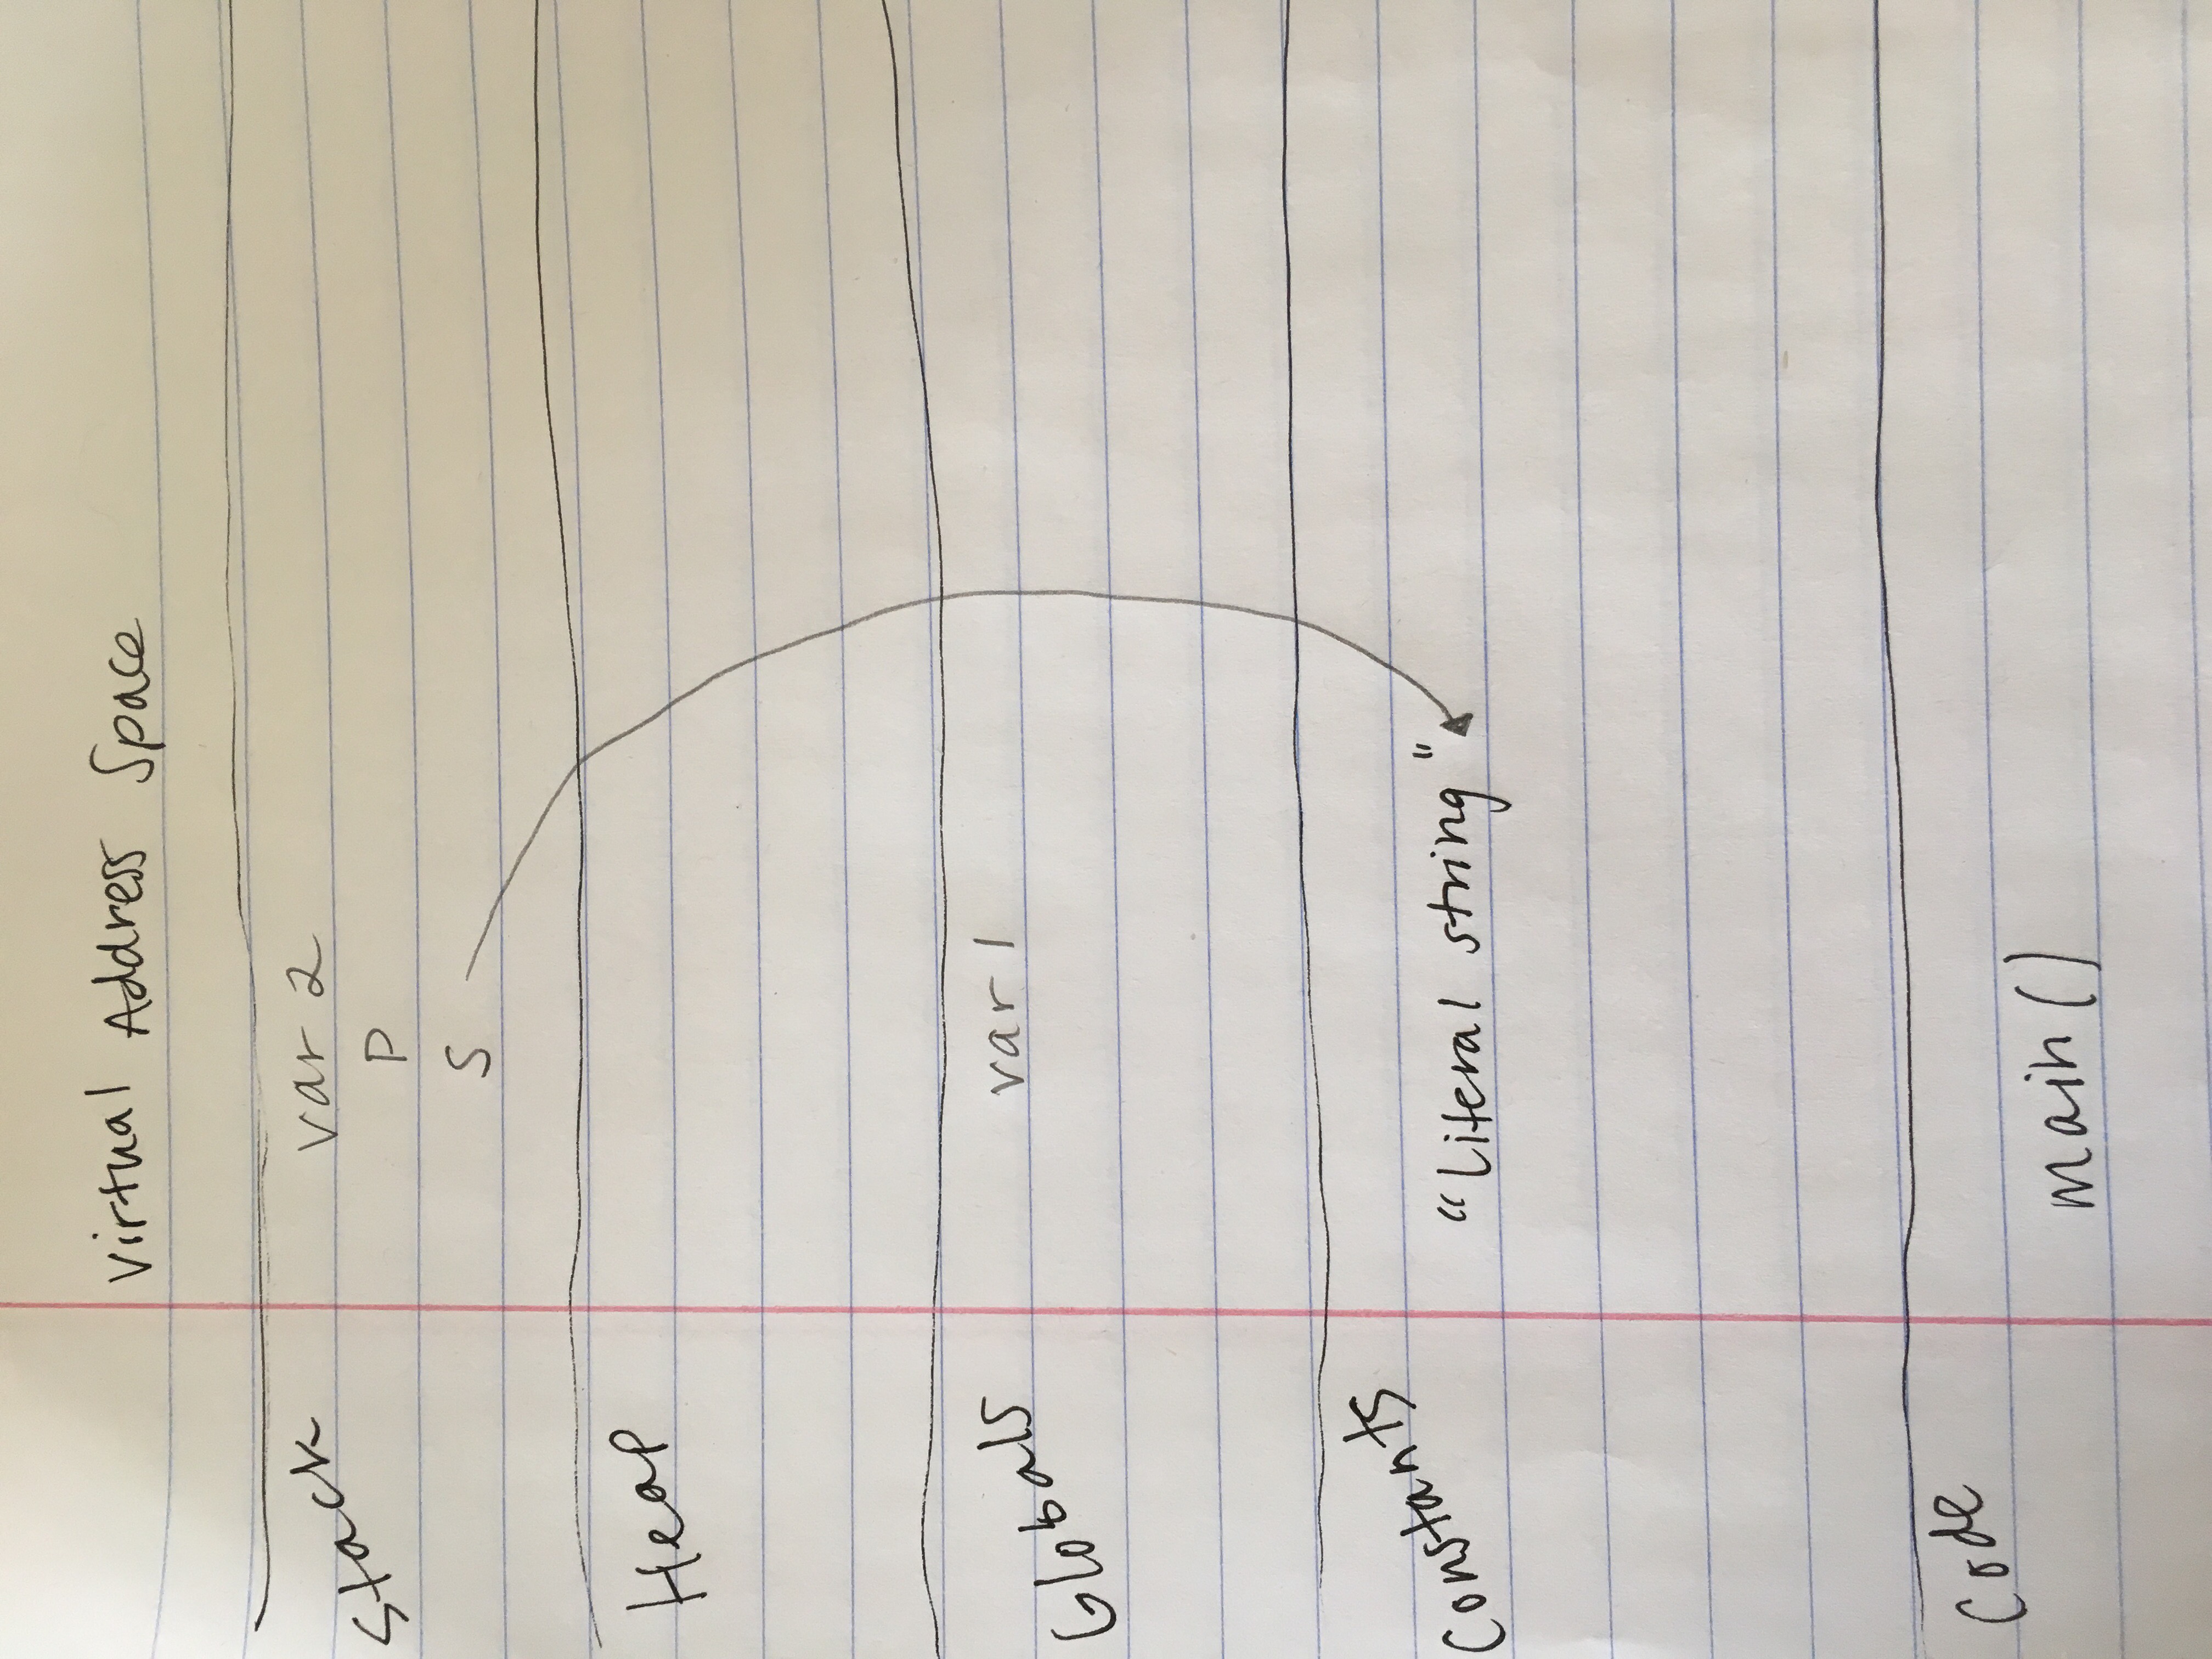 Virtual Address Space
Stack
var 2
P
S
Heap
Globals
var 1
Constants
"literal string"
Code
main()